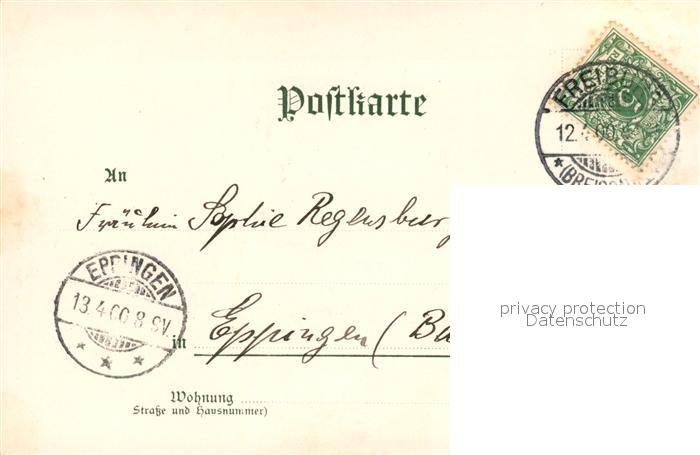 Postkarte
FREIBURG
12.4.00.
(BREISGAU)
5
An
Fräulein Sophie Regensburg
EPPINGEN
13.4.00.8-9V.
in Eppingen (Ba
Wohnung
Straße und Hausnummer)
privacy protection
Datenschutz